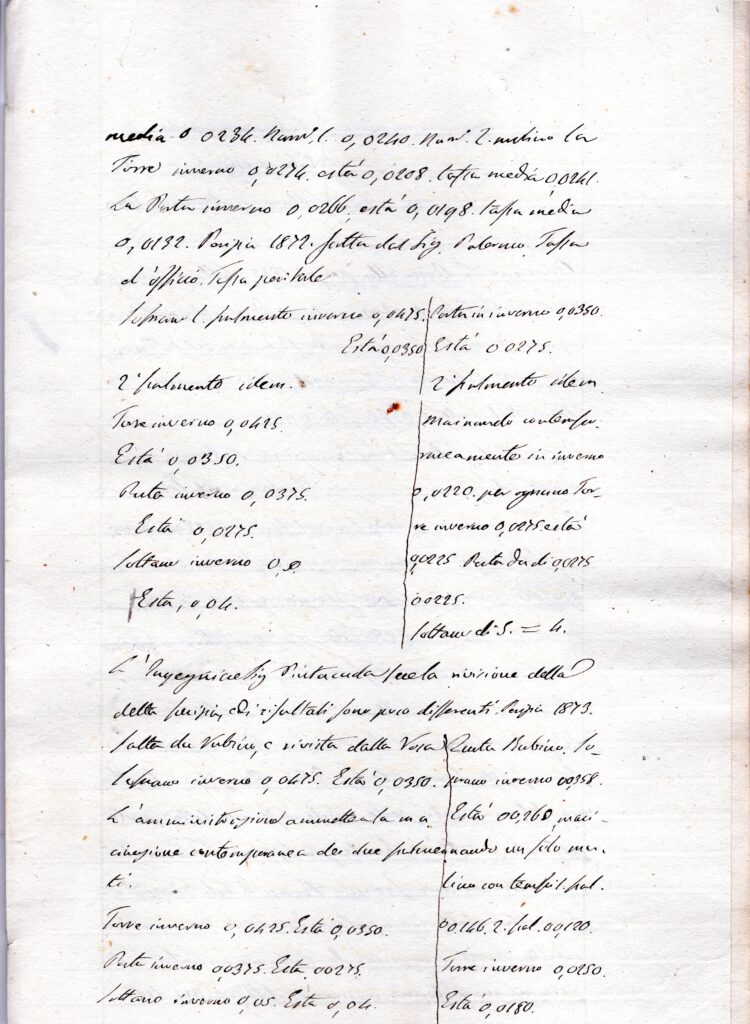 media 0 0234. Num.° 1. 0,0240. Num.° 2. mulino La
Torre inverno 0,0274. està 0,0208. tassa media 0,0241.
La Porta inverno 0,0266, està 0,0198. tassa media
0,0132. Perizia 1872. fatta dal Sig. Palermo. Tassa
d'officio. Tassa peritale
Soprano 1. palmento inverno 0,0475.
Està 0,0350
2° palmento idem.
Torre inverno 0,0425
Està 0,0350.
Porta inverno 0,0375.
Està 0,0275.
Sottano inverno 0,
Està, 0,04.
Porta in inverno 0,0350.
Està 0 0275.
2° palmento idem
Macinando contempo-
raneamente in inverno
0,0220. per ognuno Tor-
re inverno 0,0275. està
0,0225 Porta da di 0,0275
00225.
Sottano di 5. = 4.
L'Ingegniere Sig Pintacuda fece la revisione della
detta perizia, ed i risultati sono poco differenti. Perizia 1873.
fatta da Rubino, e rivista dalla
Soprano inverno 0,0475. Està 0,0350.
L'amministrazione ammette la ma
cinazione contemporanea dei due palmen
ti.
Torre inverno 0,0425. Està 0,0350.
Porta inverno 00375. Està. 00275.
Sottano inverno 0,05. Està 0,04.
Rubino. So-
prano inverno 00,358.
Està 00,260, maci-
nando un solo mu-
lino con tempo 1. pal.
00146. 2. pal. 00,120.
Torre inverno 0,0250.
Està 0,0180.